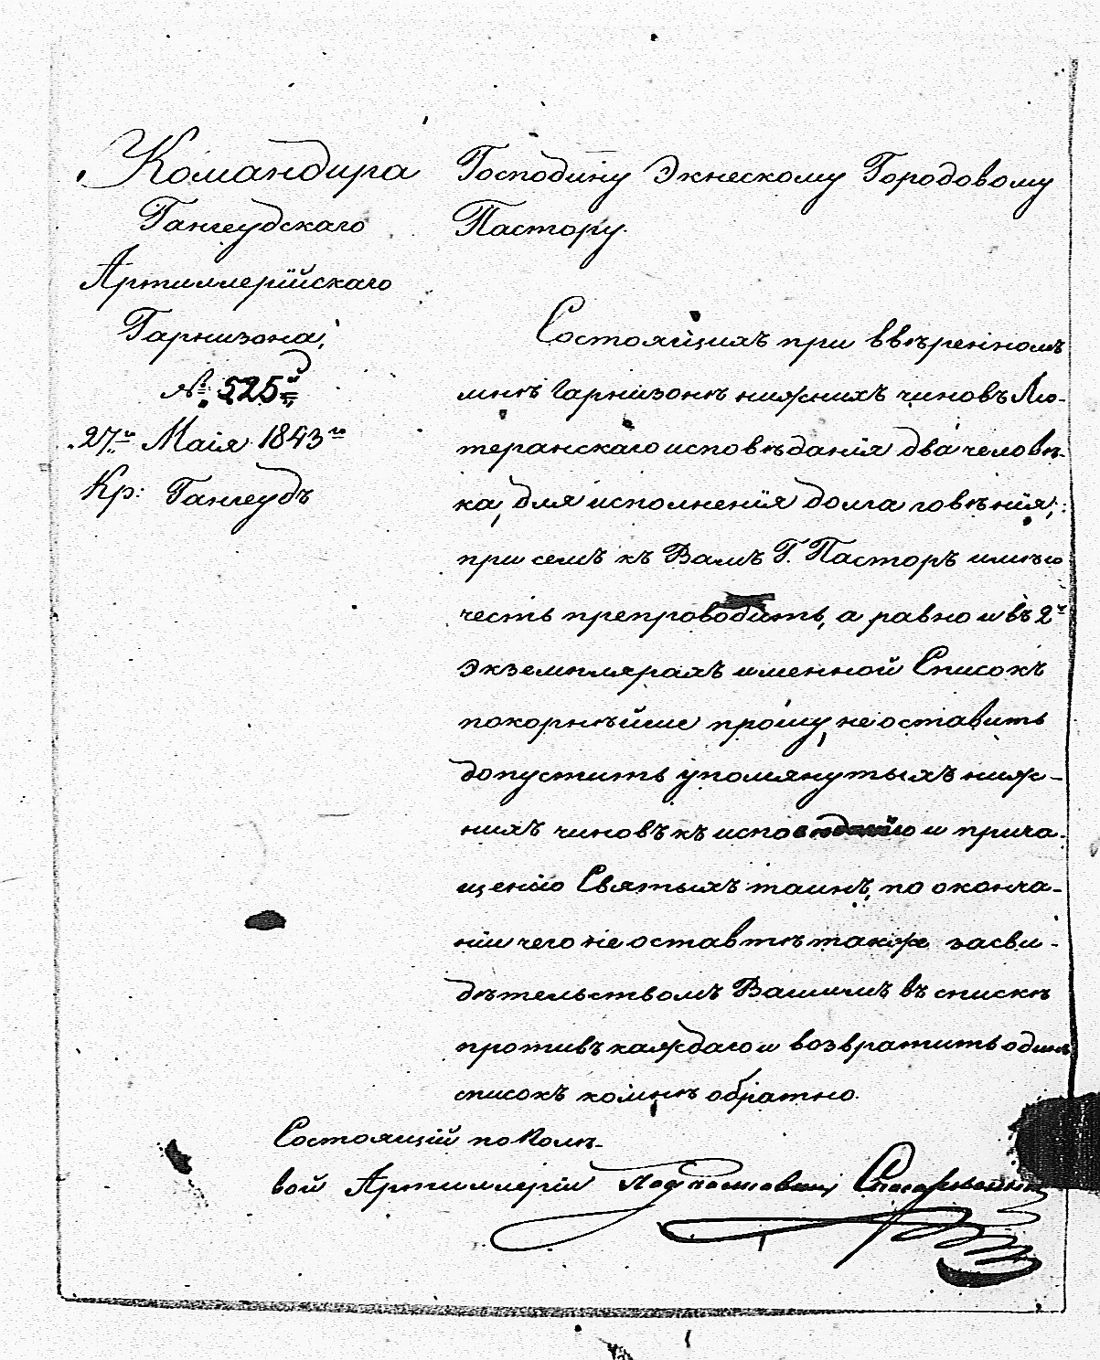 Командира
Гангеудскаго
Артиллерійскаго
Гарнизона,
№ 525й
27го Маія 1843го
Кр: Гангеудъ
Господину Экнескому Городовому
Пастору.
Состоящихъ при ввѣренномъ
мнѣ Гарнизонѣ нижнихъ чиновъ Лю-
теранскаго исповѣданія два челове-
ка, для исполненія долга говѣнія,
при семъ къ Вамъ Г. Пасторъ имѣю
честь препроводить, а равно и въ 2хъ
экземплярахъ именной Списокъ
покорнѣйше прошу, не оставить
допустить упомянутыхъ ниж-
нихъ чиновъ къ исповѣданію и прича-
щенію Святыхъ таинъ, по оконча-
ніи чего не оставте также засви-
дѣтельствомъ Вашимъ въ спискѣ
противъ каждаго и возвратить одинъ
списокъ ко мнѣ обратно.
Состоящій по Поле-
вой Артиллеріи Подполковникъ